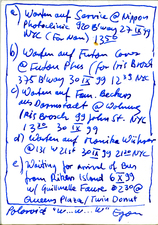 a) Warten auf Service @ Nippon
Photoclinic 920 Bway 27 IX 99
NYC (for Nam) 13
b) Warten auf Futon Cover
@ Futon Plus (for Iris Brosch
375 Bway 30 IX 99 12 NYC
c) Warten auf Fam. Beckers
aus Darmstadt @ Wohnung
Iris Brosch 99 John St. NYC
13 30 IX 99
d) Warten auf Monika Wührer
@ 131 W 21st 30 IX 99 21 NYC
e) Waiting for arrival of Bus
from Rikers Island 6 X 99
w/ Guillmette Faure 0230 @
Queens Plaza/Twin Donut
Polaroid "W...W...W" Egon